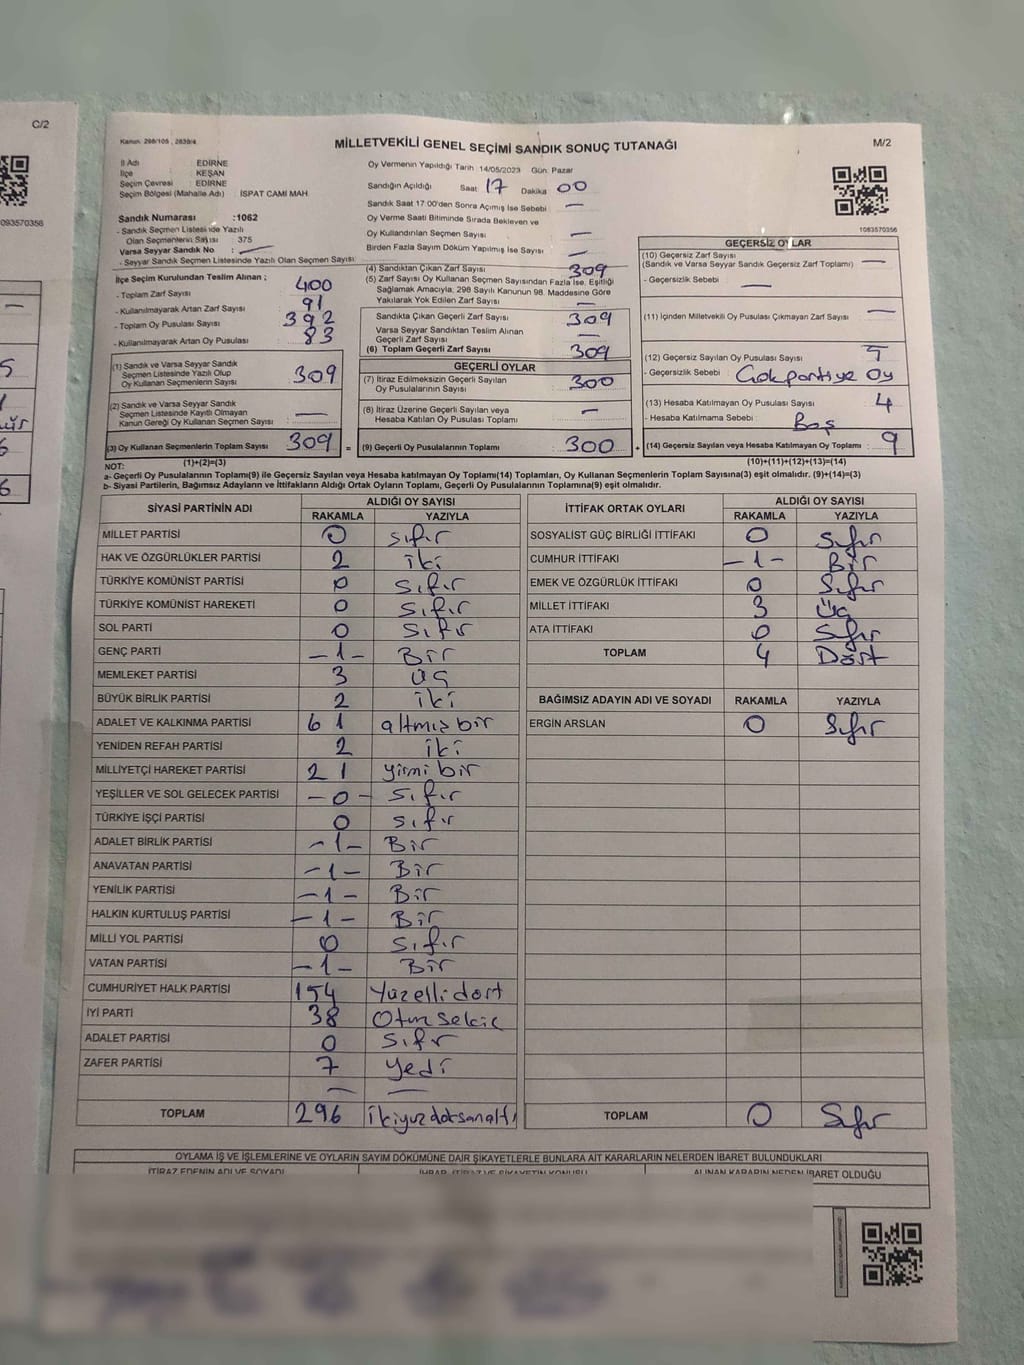 C/2
093570356
Kanun: 298/105 , 2839/4
MİLLETVEKİLİ GENEL SEÇİMİ SANDIK SONUÇ TUTANAĞI
M/2
İl Adı : EDİRNE
İlçe : KEŞAN
Seçim Çevresi : EDİRNE
Seçim Bölgesi (Mahalle Adı) : İSPAT CAMİ MAH
Sandık Numarası :1062
- Sandık Seçmen Listesinde Yazılı
Olan Seçmenlerin Sayısı : 375
Varsa Seyyar Sandık No : —
- Seyyar Sandık Seçmen Listesinde Yazılı Olan Seçmen Sayısı:
Oy Vermenin Yapıldığı Tarih :14/05/2023 Gün: Pazar
Sandığın Açıldığı Saat 17 Dakika 00
Sandık Saat 17.00'den Sonra Açılmış İse Sebebi : —
Oy Verme Saati Bitiminde Sırada Bekleyen ve
Oy Kullandırılan Seçmen Sayısı : —
Birden Fazla Sayım Döküm Yapılmış İse Sayısı : —
1083570356
İlçe Seçim Kurulundan Teslim Alınan ;
- Toplam Zarf Sayısı : 400
- Kullanılmayarak Artan Zarf Sayısı : 91
- Toplam Oy Pusulası Sayısı : 392
- Kullanılmayarak Artan Oy Pusulası : 83
(1) Sandık ve Varsa Seyyar Sandık
Seçmen Listesinde Yazılı Olup
Oy Kullanan Seçmenlerin Sayısı : 309
(2) Sandık ve Varsa Seyyar Sandık
Seçmen Listesinde Kayıtlı Olmayan
Kanun Gereği Oy Kullanan Seçmen Sayısı : —
(3) Oy Kullanan Seçmenlerin Toplam Sayısı : 309 =
(4) Sandıktan Çıkan Zarf Sayısı : 309
(5) Zarf Sayısı Oy Kullanan Seçmen Sayısından Fazla İse, Eşitliği
Sağlamak Amacıyla, 298 Sayılı Kanunun 98. Maddesine Göre
Yakılarak Yok Edilen Zarf Sayısı : —
Sandıkta Çıkan Geçerli Zarf Sayısı : 309
Varsa Seyyar Sandıktan Teslim Alınan
Geçerli Zarf Sayısı : —
(6) Toplam Geçerli Zarf Sayısı : 309
GEÇERLİ OYLAR
(7) İtiraz Edilmeksizin Geçerli Sayılan
Oy Pusulalarının Sayısı : 300
(8) İtiraz Üzerine Geçerli Sayılan veya
Hesaba Katılan Oy Pusulası Toplamı : —
(9) Geçerli Oy Pusulalarının Toplamı : 300 +
GEÇERSİZ OYLAR
(10) Geçersiz Zarf Sayısı
(Sandık ve Varsa Seyyar Sandık Geçersiz Zarf Toplamı) : —
- Geçersizlik Sebebi : —
(11) İçinden Milletvekili Oy Pusulası Çıkmayan Zarf Sayısı : —
(12) Geçersiz Sayılan Oy Pusulası Sayısı : 5
- Geçersizlik Sebebi : Çokpartiye Oy
(13) Hesaba Katılmayan Oy Pusulası Sayısı : 4
- Hesaba Katılmama Sebebi : Boş
(14) Geçersiz Sayılan veya Hesaba Katılmayan Oy Toplamı : 9
NOT: (1)+(2)=(3) (10)+(11)+(12)+(13)=(14)
a- Geçerli Oy Pusulalarının Toplamı(9) ile Geçersiz Sayılan veya Hesaba katılmayan Oy Toplamı(14) Toplamları, Oy Kullanan Seçmenlerin Toplam Sayısına(3) eşit olmalıdır. (9)+(14)=(3)
b- Siyasi Partilerin, Bağımsız Adayların ve İttifakların Aldığı Ortak Oyların Toplamı, Geçerli Oy Pusulalarının Toplamına(9) eşit olmalıdır.
SİYASİ PARTİNİN ADI ALDIĞI OY SAYISI
RAKAMLA YAZIYLA
MİLLET PARTİSİ 0 sıfır
HAK VE ÖZGÜRLÜKLER PARTİSİ 2 iki
TÜRKİYE KOMÜNİST PARTİSİ 0 sıfır
TÜRKİYE KOMÜNİST HAREKETİ 0 sıfır
SOL PARTİ 0 sıfır
GENÇ PARTİ -1- Bir
MEMLEKET PARTİSİ 3 üç
BÜYÜK BİRLİK PARTİSİ 2 iki
ADALET VE KALKINMA PARTİSİ 61 altmış bir
YENİDEN REFAH PARTİSİ 2 iki
MİLLİYETÇİ HAREKET PARTİSİ 21 yirmi bir
YEŞİLLER VE SOL GELECEK PARTİSİ -0- sıfır
TÜRKİYE İŞÇİ PARTİSİ 0 sıfır
ADALET BİRLİK PARTİSİ -1- Bir
ANAVATAN PARTİSİ -1- Bir
YENİLİK PARTİSİ -1- Bir
HALKIN KURTULUŞ PARTİSİ -1- Bir
MİLLİ YOL PARTİSİ 0 sıfır
VATAN PARTİSİ -1- Bir
CUMHURİYET HALK PARTİSİ 154 Yüzelli dört
İYİ PARTİ 38 Otuz sekiz
ADALET PARTİSİ 0 sıfır
ZAFER PARTİSİ 7 yedi
TOPLAM 296 ikiyüzdoksanaltı
İTTİFAK ORTAK OYLARI ALDIĞI OY SAYISI
RAKAMLA YAZIYLA
SOSYALİST GÜÇ BİRLİĞİ İTTİFAKI 0 Sıfır
CUMHUR İTTİFAKI -1- Bir
EMEK VE ÖZGÜRLÜK İTTİFAKI 0 Sıfır
MİLLET İTTİFAKI 3 Üç
ATA İTTİFAKI 0 Sıfır
TOPLAM 4 Dört
BAĞIMSIZ ADAYIN ADI VE SOYADI RAKAMLA YAZIYLA
ERGİN ARSLAN 0 Sıfır
TOPLAM 0 Sıfır
OYLAMA İŞ VE İŞLEMLERİNE VE OYLARIN SAYIM DÖKÜMÜNE DAİR ŞİKAYETLERLE BUNLARA AİT KARARLARIN NELERDEN İBARET BULUNDUKLARI
İTİRAZ EDENİN ADI VE SOYADI İHBAR, İTİRAZ VE ŞİKAYETİN KONUSU ALINAN KARARIN NEDEN İBARET OLDUĞU